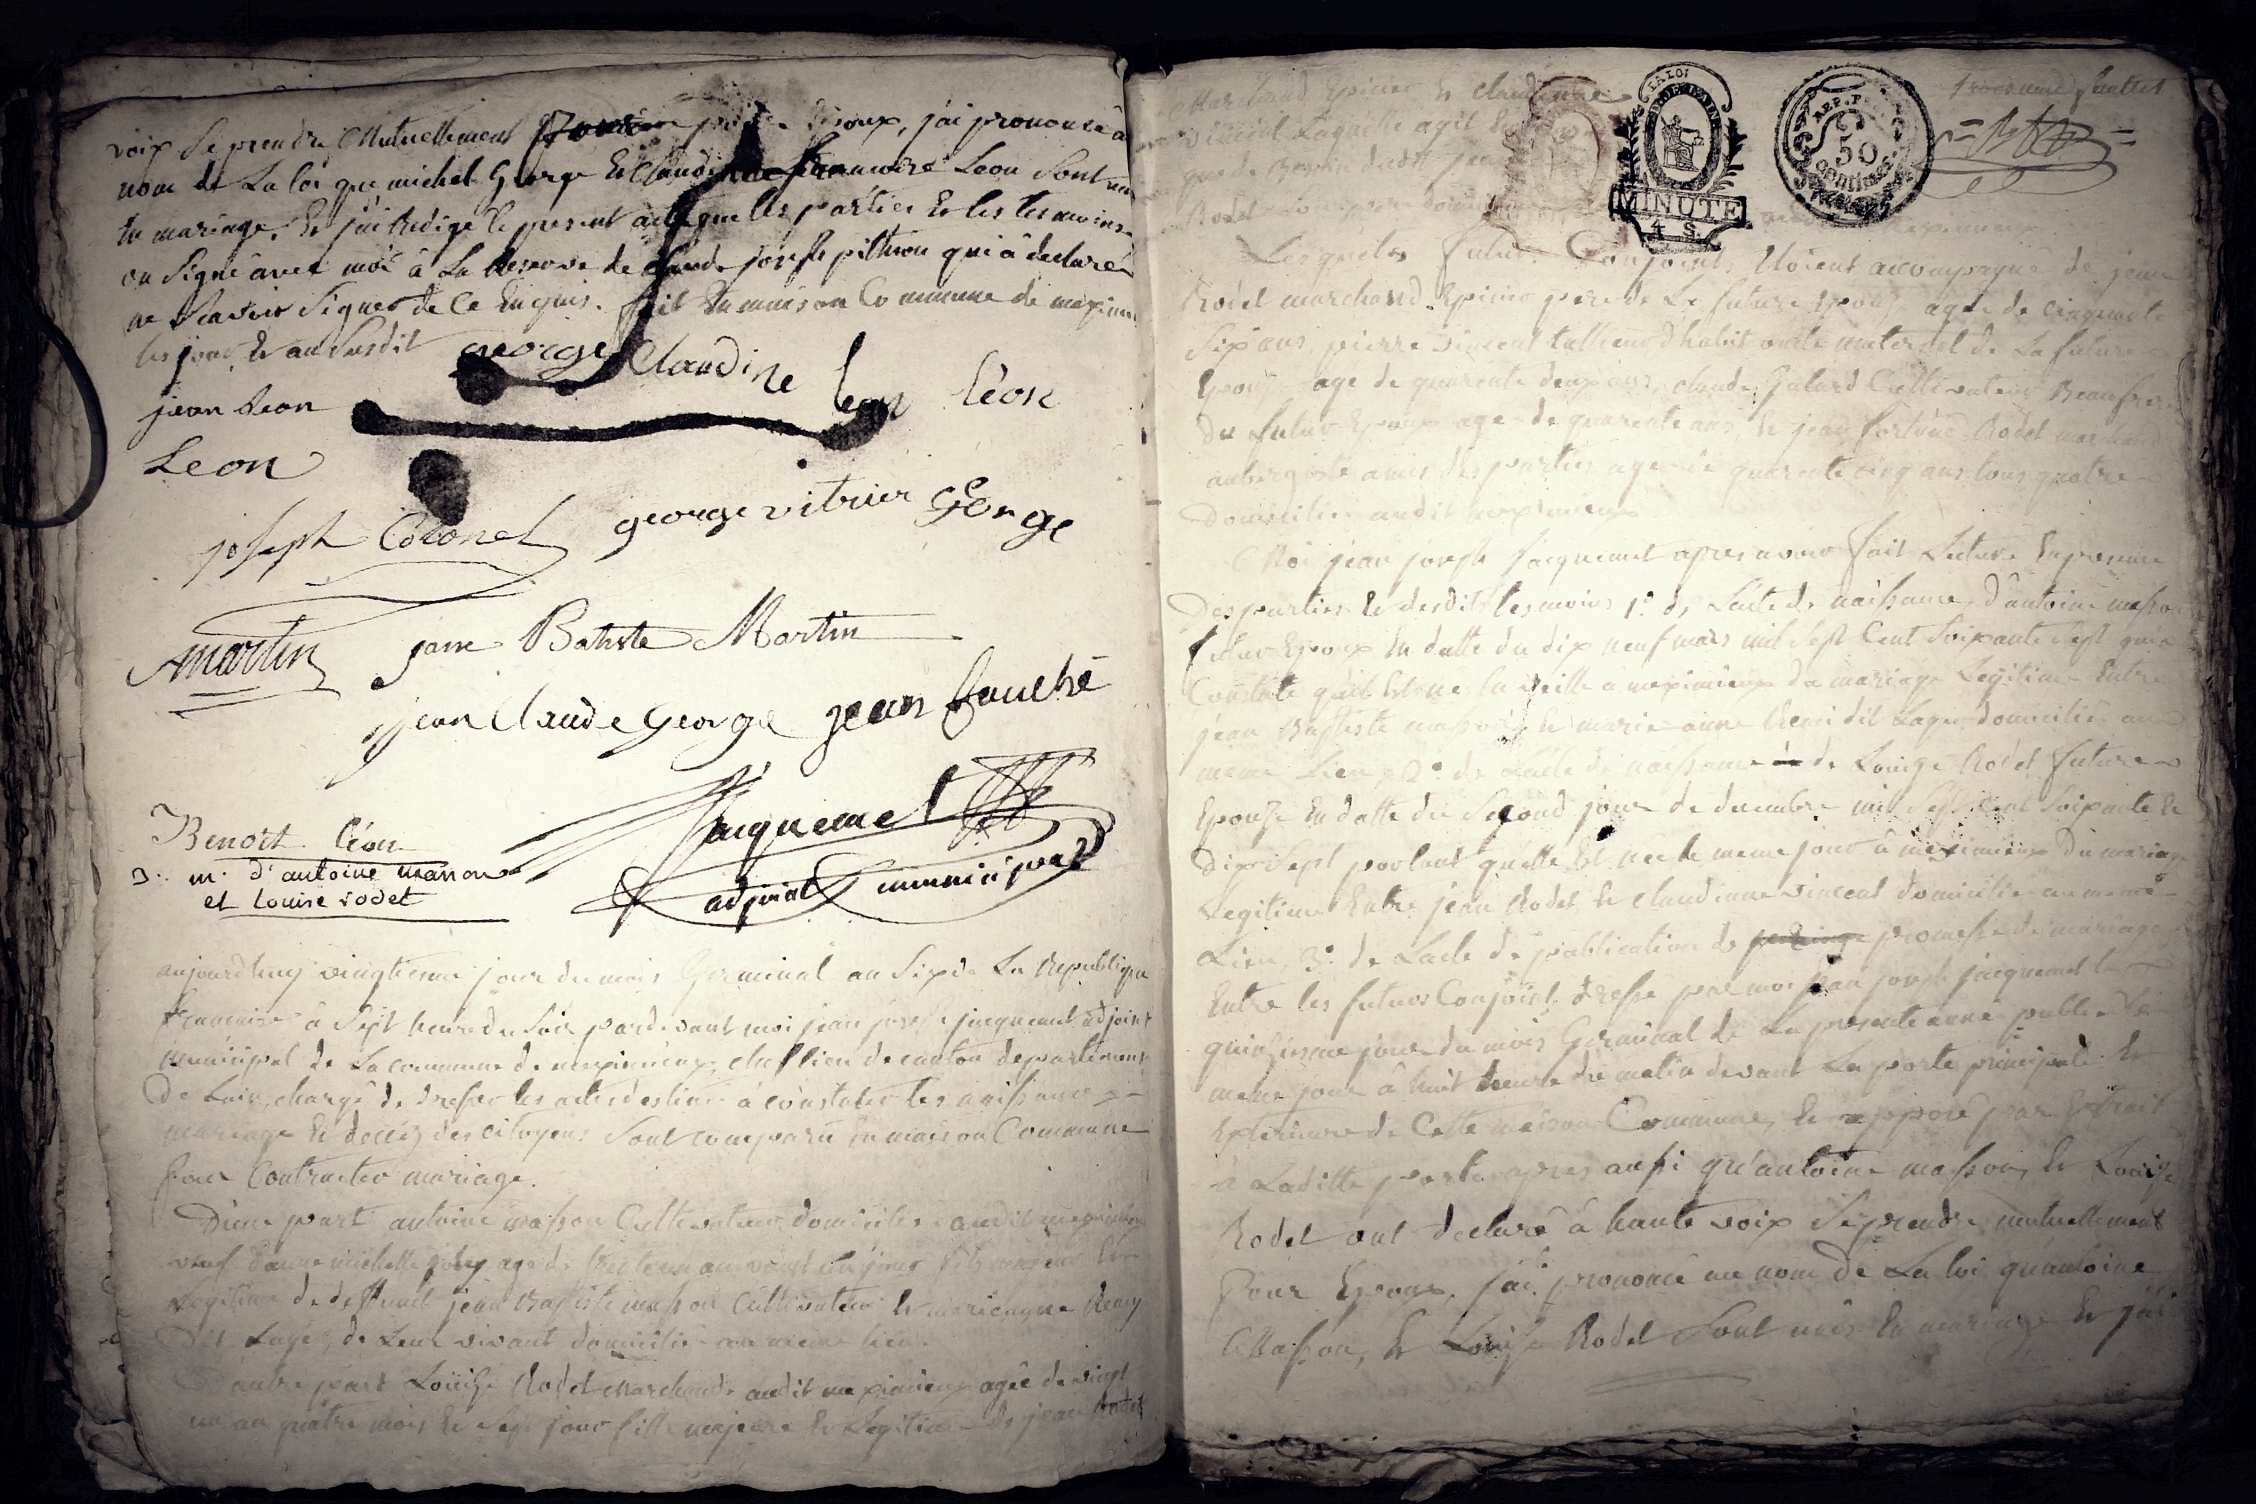 voix se prendre mutuellement pour epoux, j'ai prononcé a
nom de La loi que michel George et Claudine francoise Leon Sont unis
en mariage, et j'ai redigé le present acte que les parties et les temoins
on Signé avec moi à La Reserve de Claude joseph pithion qui à declaré
ne Scavoir Signer de ce Enquis. fait En maison Commune de meximieux
les jour et an Susdit
george Claudine leon léon
jean Leon
Leon
joseph Colonel george vitrier George
Martin jean Batiste Martin
jean Claude George jean fauché
Benoit léon
Jacquemet
adjoint municipal
3. m. d'antoine masson
et Louise rodet
aujourd'huy vingtieme jour du mois Germinal an Six de La Republique
francaise à Sept heure du Soir pardevant moi jean joseph jacquemet adjoint
municipal de La commune de meximieux, cheflieu de canton departement
De Lain, chargé de dresser les actes destinés à constater les naissances
mariage et décèz des citoyens Sont comparu En maison Commune
pour Contracter mariage.
D'une part antoine masson Cultivateur domicilié audit meximieux
veuf Danne michelle agé de trente un ans vingt un jour fils majeur et
Legitime de deffunct jean Baptiste masson Cultivateur et marieanne Remy
Dit Lagé, de Leur vivant domicilié au meme lieu.
D'autre part Louïse Rodet Marchande audit meximieux agée de vingt
un an quatre mois et Sept jour fille majeure et Legitime de jean Rodet
Marchand Epicier et Claudinne
vincent Laquelle agit
Rodet
MINUTE
4 S.
LA LOI
REP. F.
50
centimes
Lesquels futurs Conjoints Etoient accompagné de jean
Rodet marchand Epicier pere de La future Epouse agée de Cinquante
Six ans, pierre vincent tailleur d'habit oncle maternel de La future
Epouse agé de quarante deux ans, claude Galard Cultivateur Beaufrere
du futur Epoux agé de quarente ans et jean fortuné Rodet marchand
aubergiste amis des parties agé de quarente cinq ans tous quatre
Domicilié audit meximieux
Moi jean joseph Jacquemet apres avoir fait Lecture En presence
Des parties et desdits temoins 1.º de Lacte de naissance d'antoine masson
futur Epoux En datte du dix neuf mars mil Sept Cent Soixante Sept qui
Constate qu'il Est né la veille a meximieux du mariage Legitime Entre
jean Baptiste masson et marie anne Remi dit Lagé domicilié au
meme Lieu, 2.º de Lacte de naissance de Louise Rodet future
Epouse En datte du Second jour de decembre mil Sept Cent Soixante et
Dix Sept portant qu'elle Est née le meme jour à meximieux du mariage
Legitime Entre jean Rodet et Claudinne vincent domicilié au meme
Lieu, 3.º de Lacte de publication de promesse de mariage
Entre les futurs Conjoint dressé par moi jean joseph jacquemet le
quinzieme jour du mois Germinal de La presente année publié Le
meme jour à huit heure du matin devant La porte principale et
Exterieure de Cette maison Commune, et apposé par Extrait
à Laditte porte apres aussi qu'antoine masson, et Louise
Rodet ont declaré à haute voix Se prendre mutuellement
Pour Epoux, j'ai prononcé au nom de La loi qu'antoine
Masson, et Louise Rodet Sont unis En mariage et j'ai